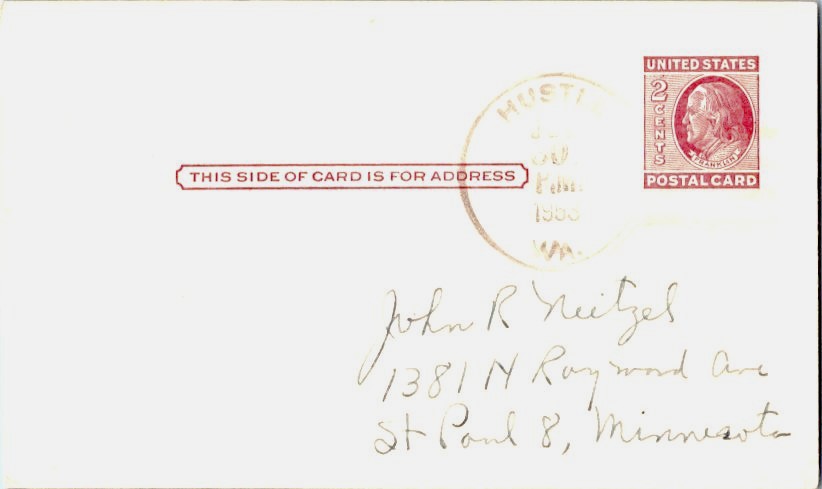 UNITED STATES
2 CENTS
FRANKLIN
POSTAL CARD
30
P.M.
1953
VA.
THIS SIDE OF CARD IS FOR ADDRESS
John R Neitzel
1381 N Raymond Ave
St Paul 8, Minnesota